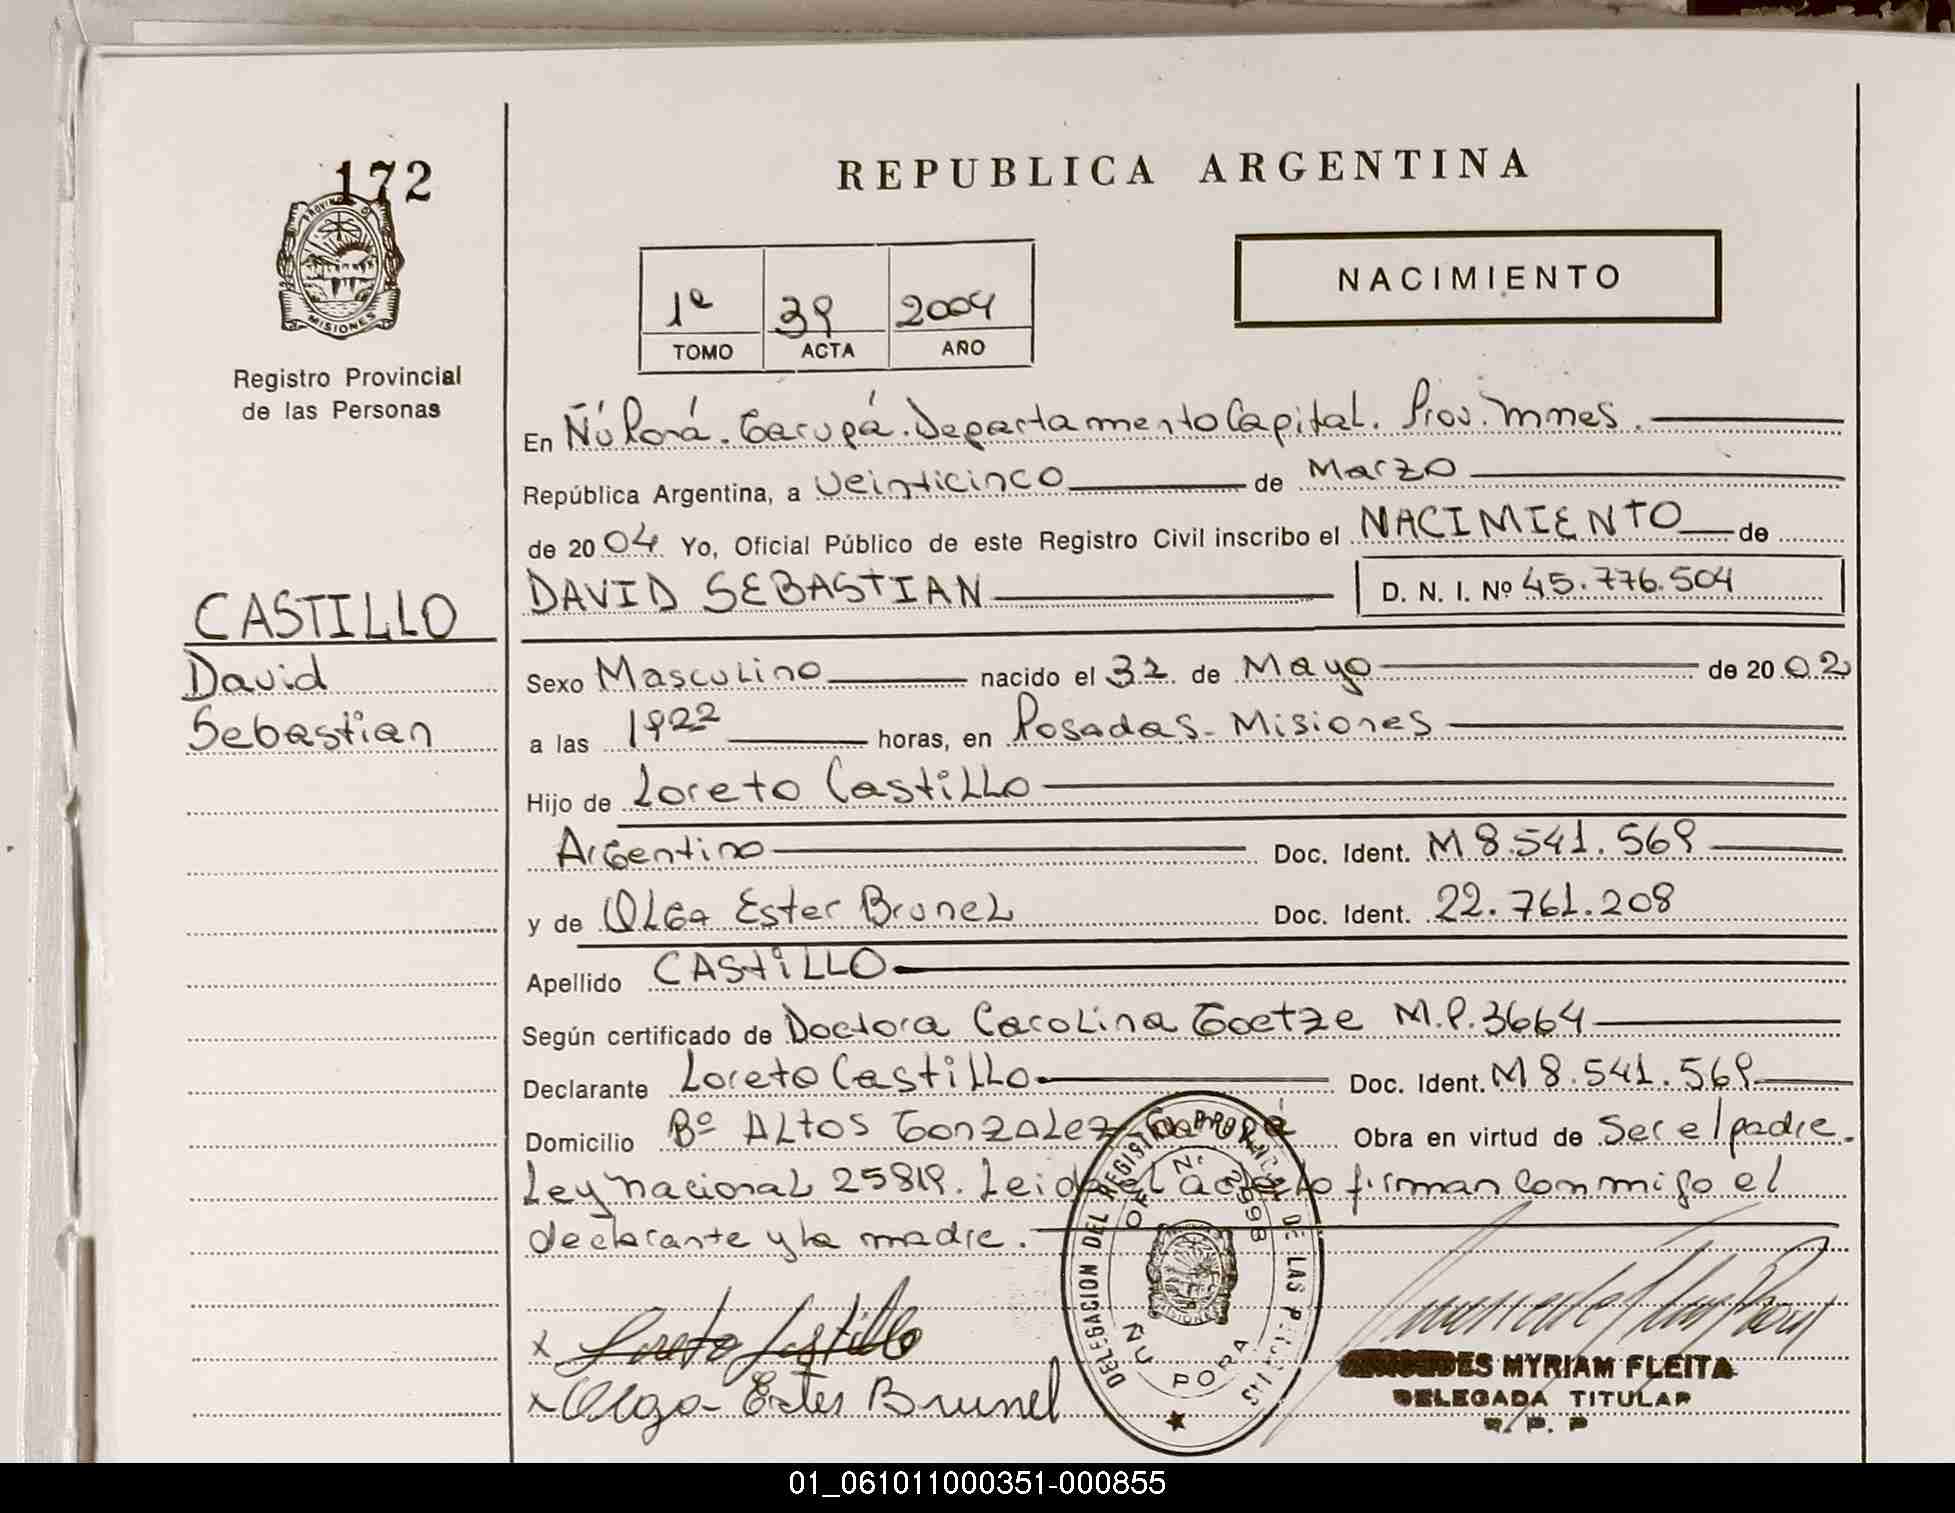 172
PROVINCIA DE
MISIONES
Registro Provincial
de las Personas
CASTILLO
David
Sebastian
REPUBLICA ARGENTINA
NACIMIENTO
1º 39 2004
TOMO ACTA AÑO
En Ñú Porá. Garupá. Departamento Capital. Prov. Mnes.
República Argentina, a veinticinco de Marzo
de 2004 Yo, Oficial Público de este Registro Civil inscribo el NACIMIENTO de
DAVID SEBASTIAN D. N. I. Nº 45.776.504
Sexo Masculino nacido el 32 de Mayo de 2002
a las 1922 horas, en Posadas - Misiones
Hijo de Loreto Castillo
Argentino Doc. Ident. M 8.541.569
y de Olga Ester Brunel Doc. Ident. 22.761.208
Apellido CASTILLO
Según certificado de Doctora Carolina Goetze M.P. 3664
Declarante Loreto Castillo Doc. Ident. M 8.541.569
Domicilio Bº Altos Gonzalez - Garupá Obra en virtud de Ser el padre.
Ley Nacional 25819. Leida el acta lo firman conmigo el
declarante y la madre.
x Loreto Castillo
x Olga Ester Brunel
DELEGACION DEL REGISTRO PROVINCIAL DE LAS PERSONAS
OF. Nº 2998
MISIONES
ÑU PORA
MYRIAM FLEITA
DELEGADA TITULAR
R. P. P
01_061011000351-000855